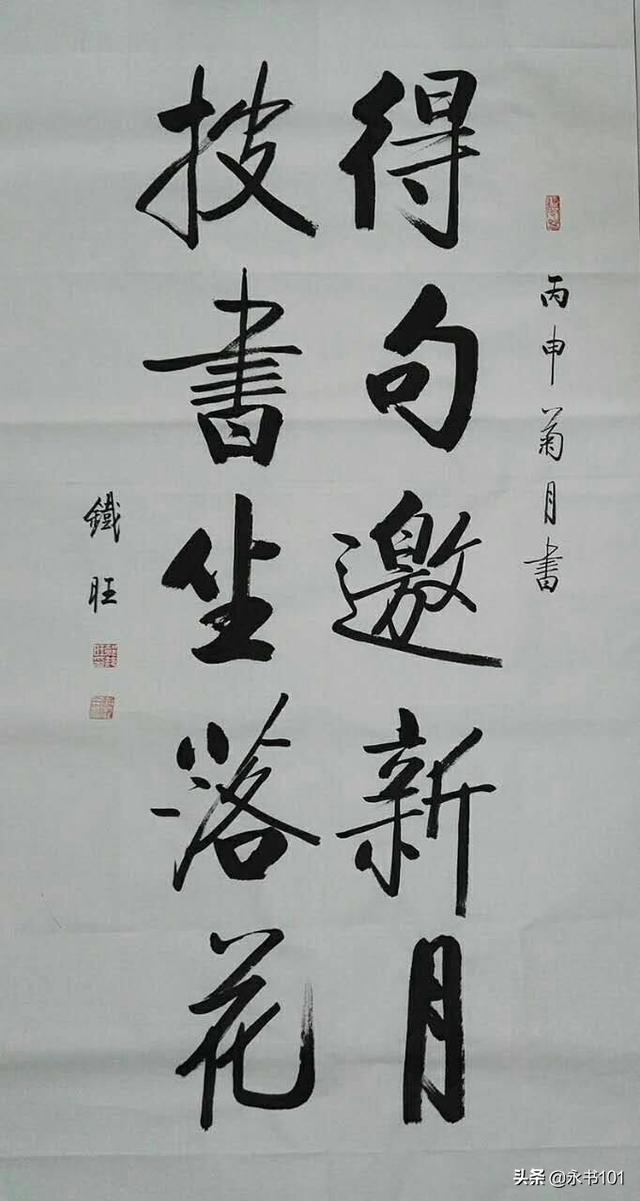 丙申菊月書
得句邀新月
披書坐落花
鐵旺
头条 @永书101